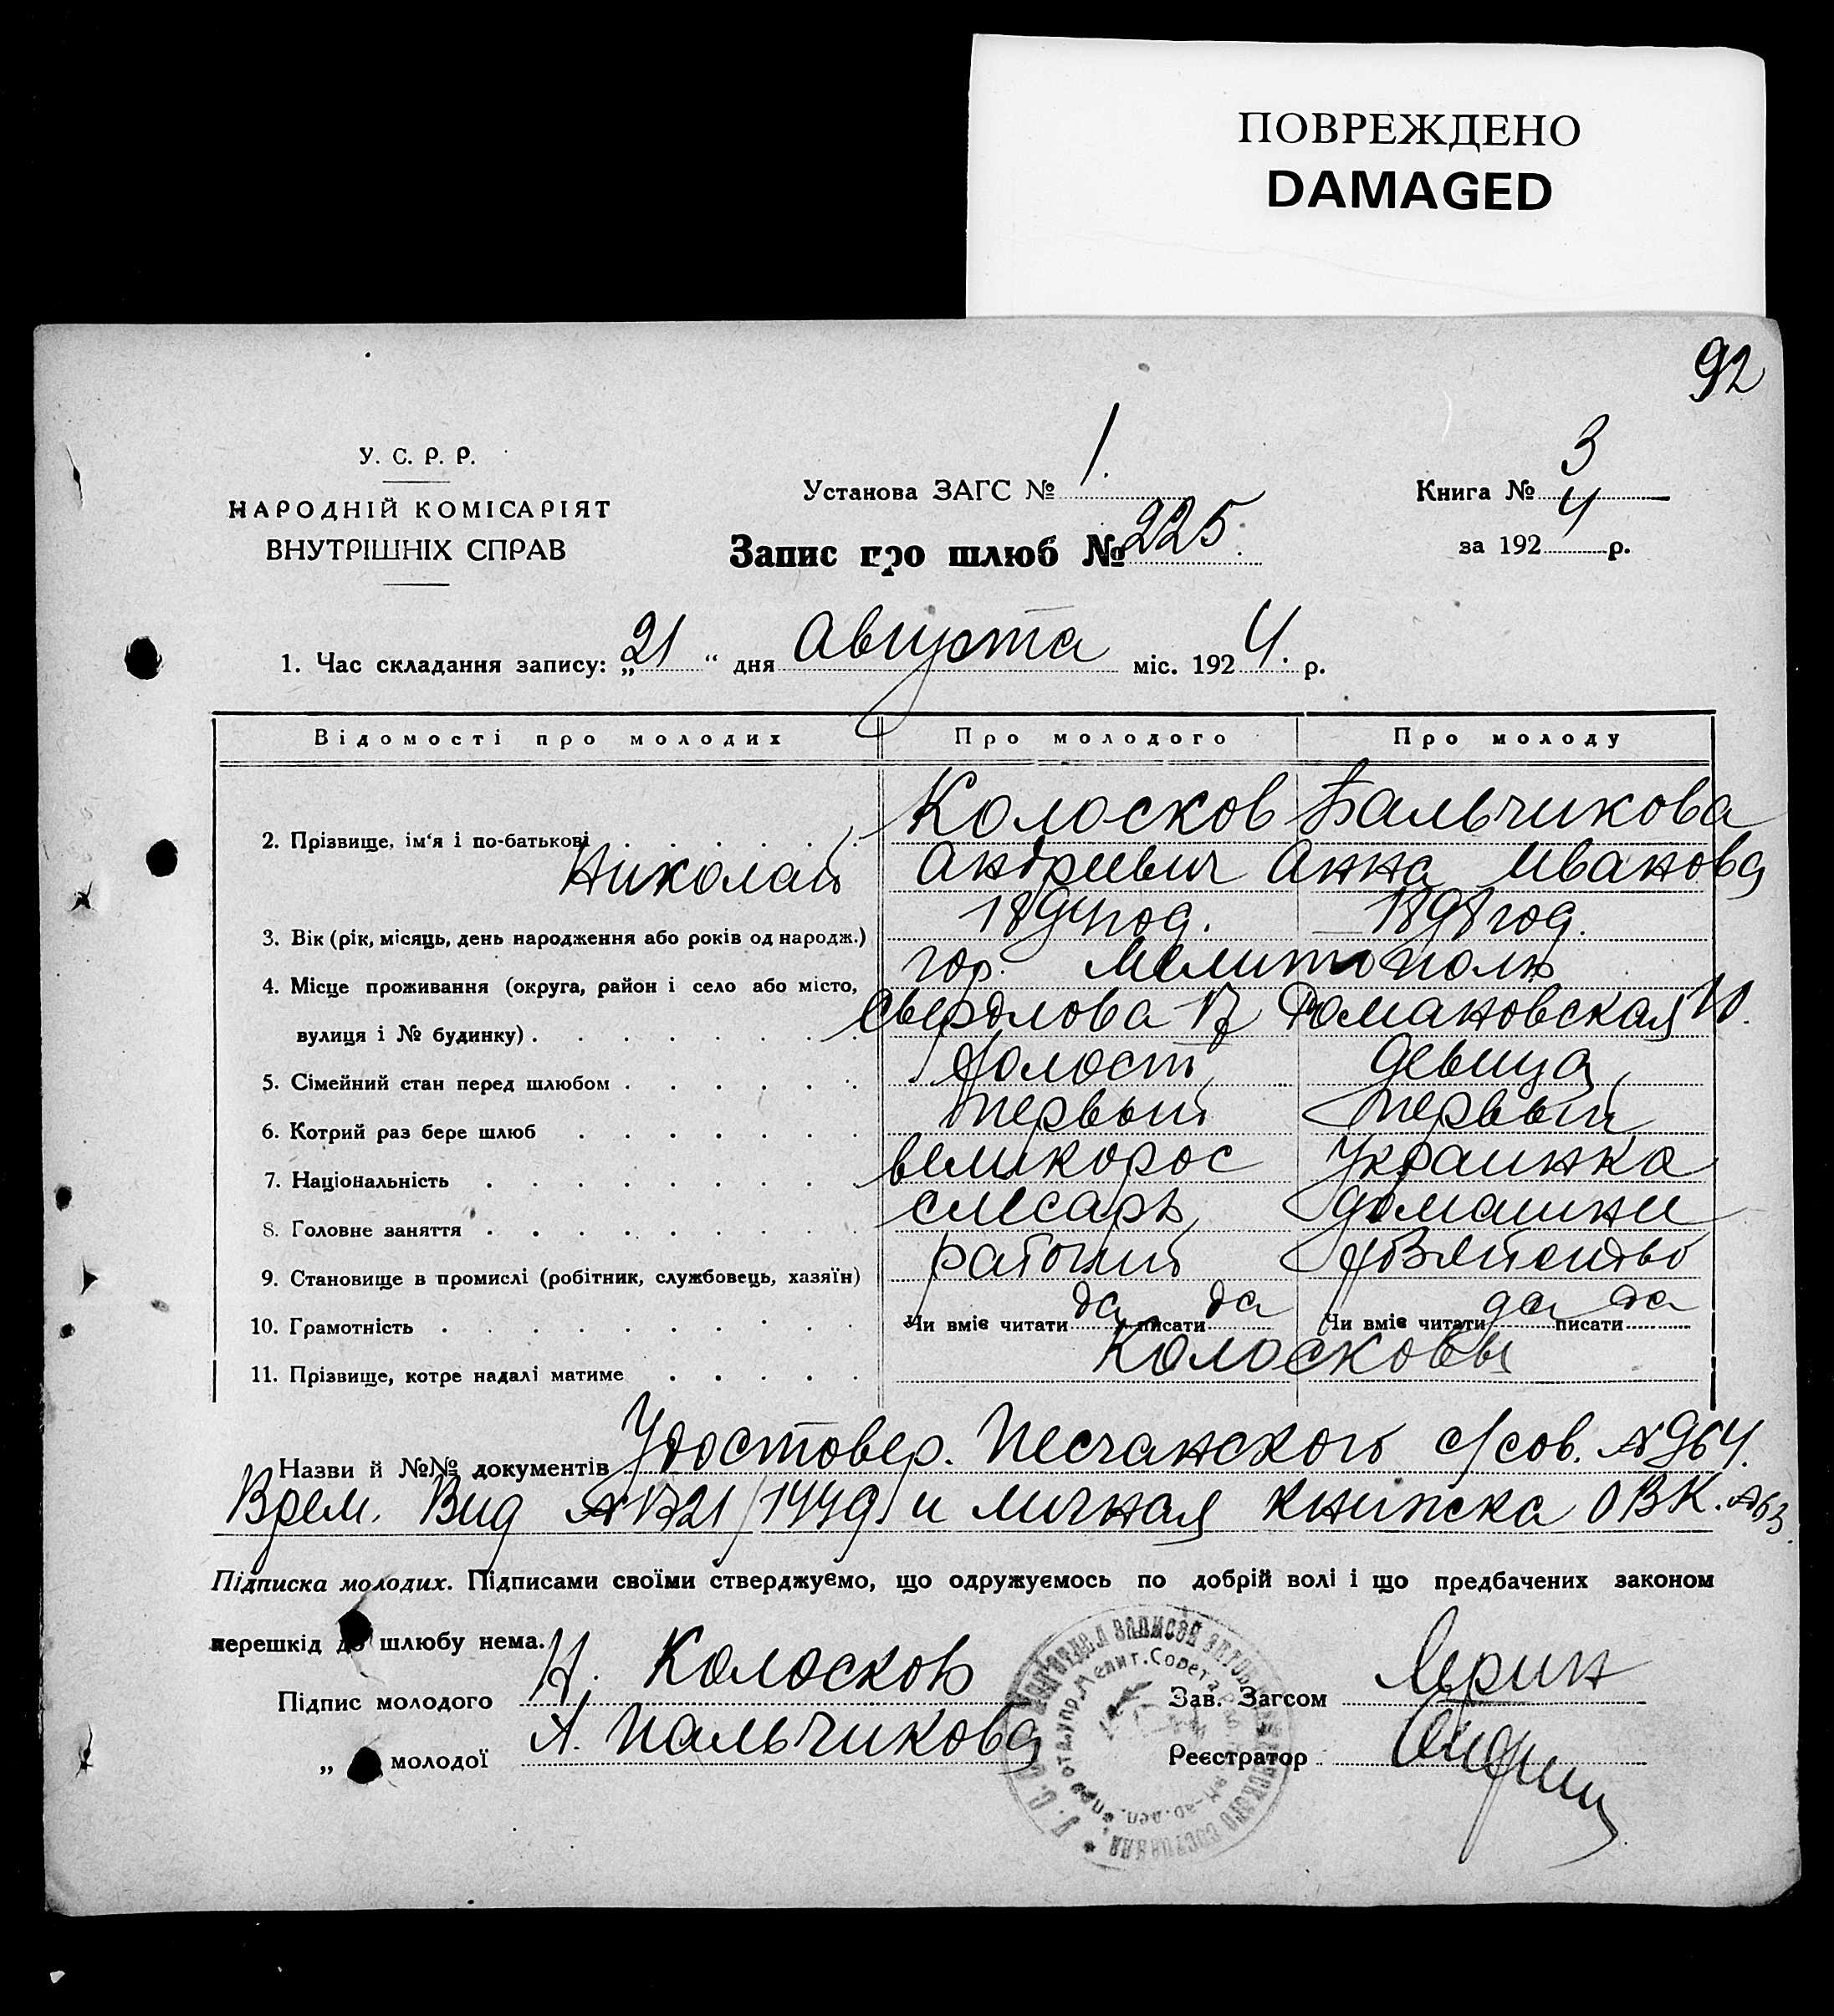 ПОВРЕЖДЕНО
DAMAGED
92
У. С. Р. Р.
НАРОДНІЙ КОМІСАРІЯТ
ВНУТРІШНІХ СПРАВ
Установа ЗАГС № 1.
Запис про шлюб № 225.
Книга № 3
за 1924 р.
1. Час складання запису: „21“ дня Августа міс. 1924. р.
Відомості про молодих Про молодого Про молоду
2. Прізвище, ім'я і по-батькові Колосков Бальчикова
Николай Андреевич Анна Иванова
3. Вік (рік, місяць, день народження або років од народж.) 1894 год. 1898 год.
4. Місце проживання (округа, район і село або місто, гор. Мелитополь
вулиця і № будинку) Свердлова 17 Романовская 10.
5. Сімейний стан перед шлюбом Холост девица
6. Котрий раз бере шлюб первый первый
7. Національність великорос Украинка
8. Головне заняття слесарь домашнее
9. Становище в промислі (робітник, службовець, хазяїн) рабочий хозяйство
10. Грамотність Чи вміє читати да писати да Чи вміє читати да писати да
11. Прізвище, котре надалі матиме Колосковы
Назви й №№ документів Удостовер. Песчанского с/сов. №964.
Врем. Вид № 1721/1449 и личная книжка ОВК. №63
Підписка молодих. Підписами своїми стверджуємо, що одружуємось по добрій волі і що предбачених законом
перешкід до шлюбу нема.
Підпис молодого Н. Колосков Зав. Загсом
„ молодої А. Пальчикова Реєстратор